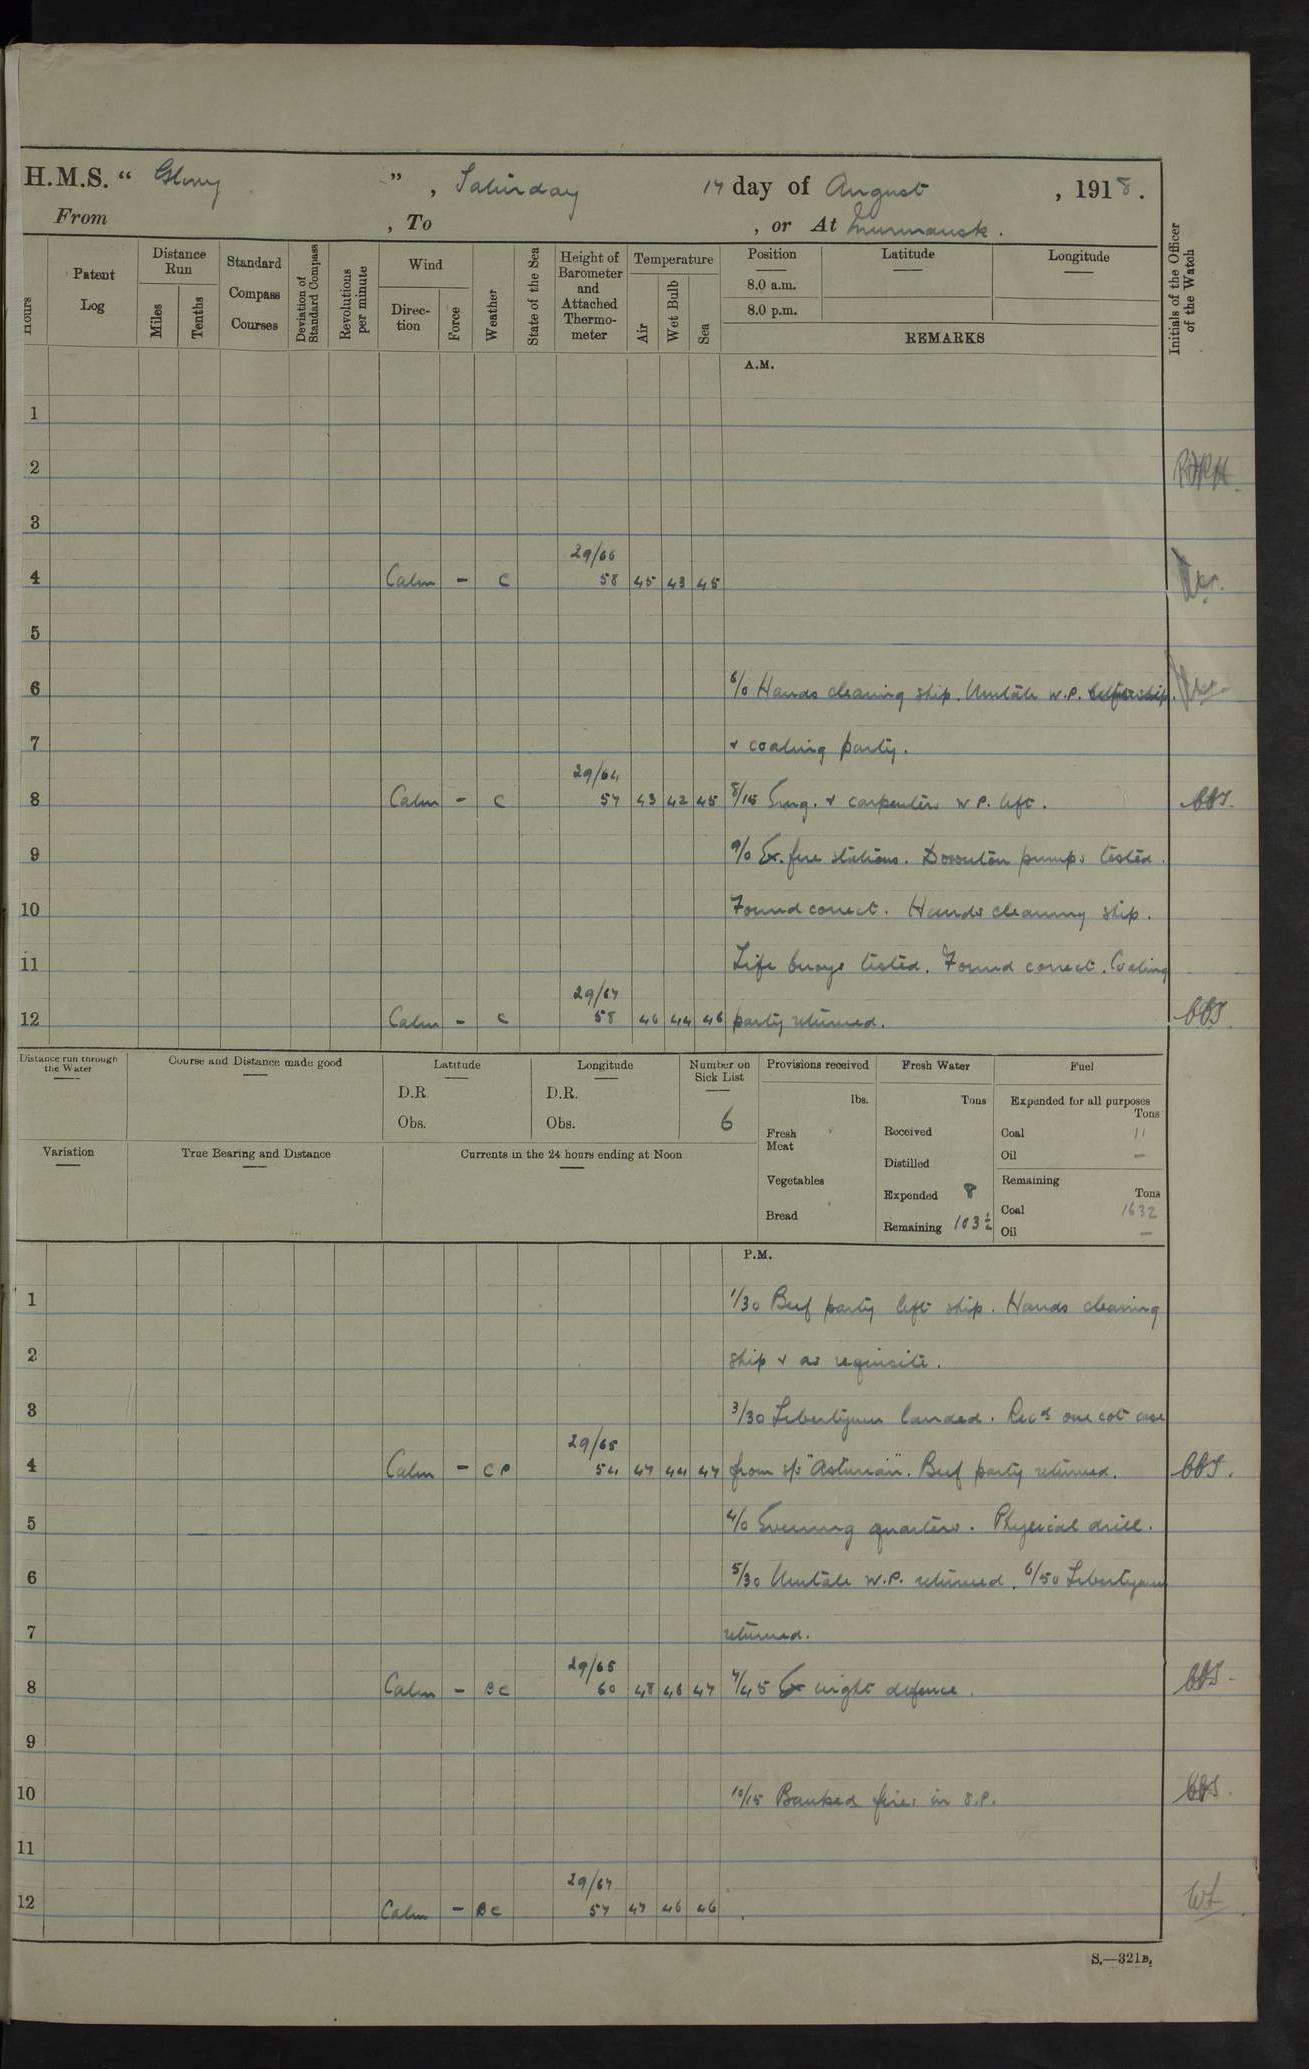 H.M.S. “ Glory ” , Saturday 17 day of August , 1918 .
From , To , or At Murmansk .
Hours
Patent Log
Distance Run
Miles
Tenths
Standard Compass Courses
Deviation of Standard Compass
Revolutions per minute
Wind
Direction
Force
Weather
State of the Sea
Height of Barometer and Attached Thermometer
Temperature
Air
Wet Bulb
Sea
Position
8.0 a.m.
8.0 p.m.
Latitude
Longitude
REMARKS
Initials of the Officer of the Watch
A.M.
1
2
3
29/66
4 Calm - C 58 45 43 45
5
6 6/0 Hands cleaning ship. Umtali W.P. left ship
7 & coaling party.
29/64
8 Calm - C 57 43 42 45 8/15 Eng. & carpenters W P. left.
9 9/0 Ex. fire stations. Downton pumps tested.
10 Found correct. Hands cleaning ship.
11 Life buoys tested. Found correct. Coaling
29/67
12 Calm - C 58 46 44 46 party returned.
Distance run through the Water
Course and Distance made good
Latitude
D.R.
Obs.
Longitude
D.R.
Obs.
Number on Sick List
6
Provisions received
lbs.
Fresh Meat
Vegetables
Bread
Fresh Water
Tons
Received
Distilled
Expended 8
Remaining 103½
Fuel
Expended for all purposes
Tons
Coal 11
Oil -
Remaining
Tons
Coal 1632
Oil -
Variation
True Bearing and Distance
Currents in the 24 hours ending at Noon
P.M.
1 1/30 Beef party left ship. Hands cleaning
2 ship & as requisite.
3 3/30 Libertymen landed. Recd one cot case
29/65
4 Calm - CP 54 47 44 47 from s/s "Asturian". Beef party returned.
5 4/0 Evening quarters. Physical drill.
6 5/30 Umtali W.P. returned. 6/50 Libertymen
7 returned.
29/65
8 Calm - BC 60 48 46 47 7/45 Ex night defence.
9
10 10/15 Banked fires in S.P.
11
29/67
12 Calm - BC 57 47 46 46
S.—321B.